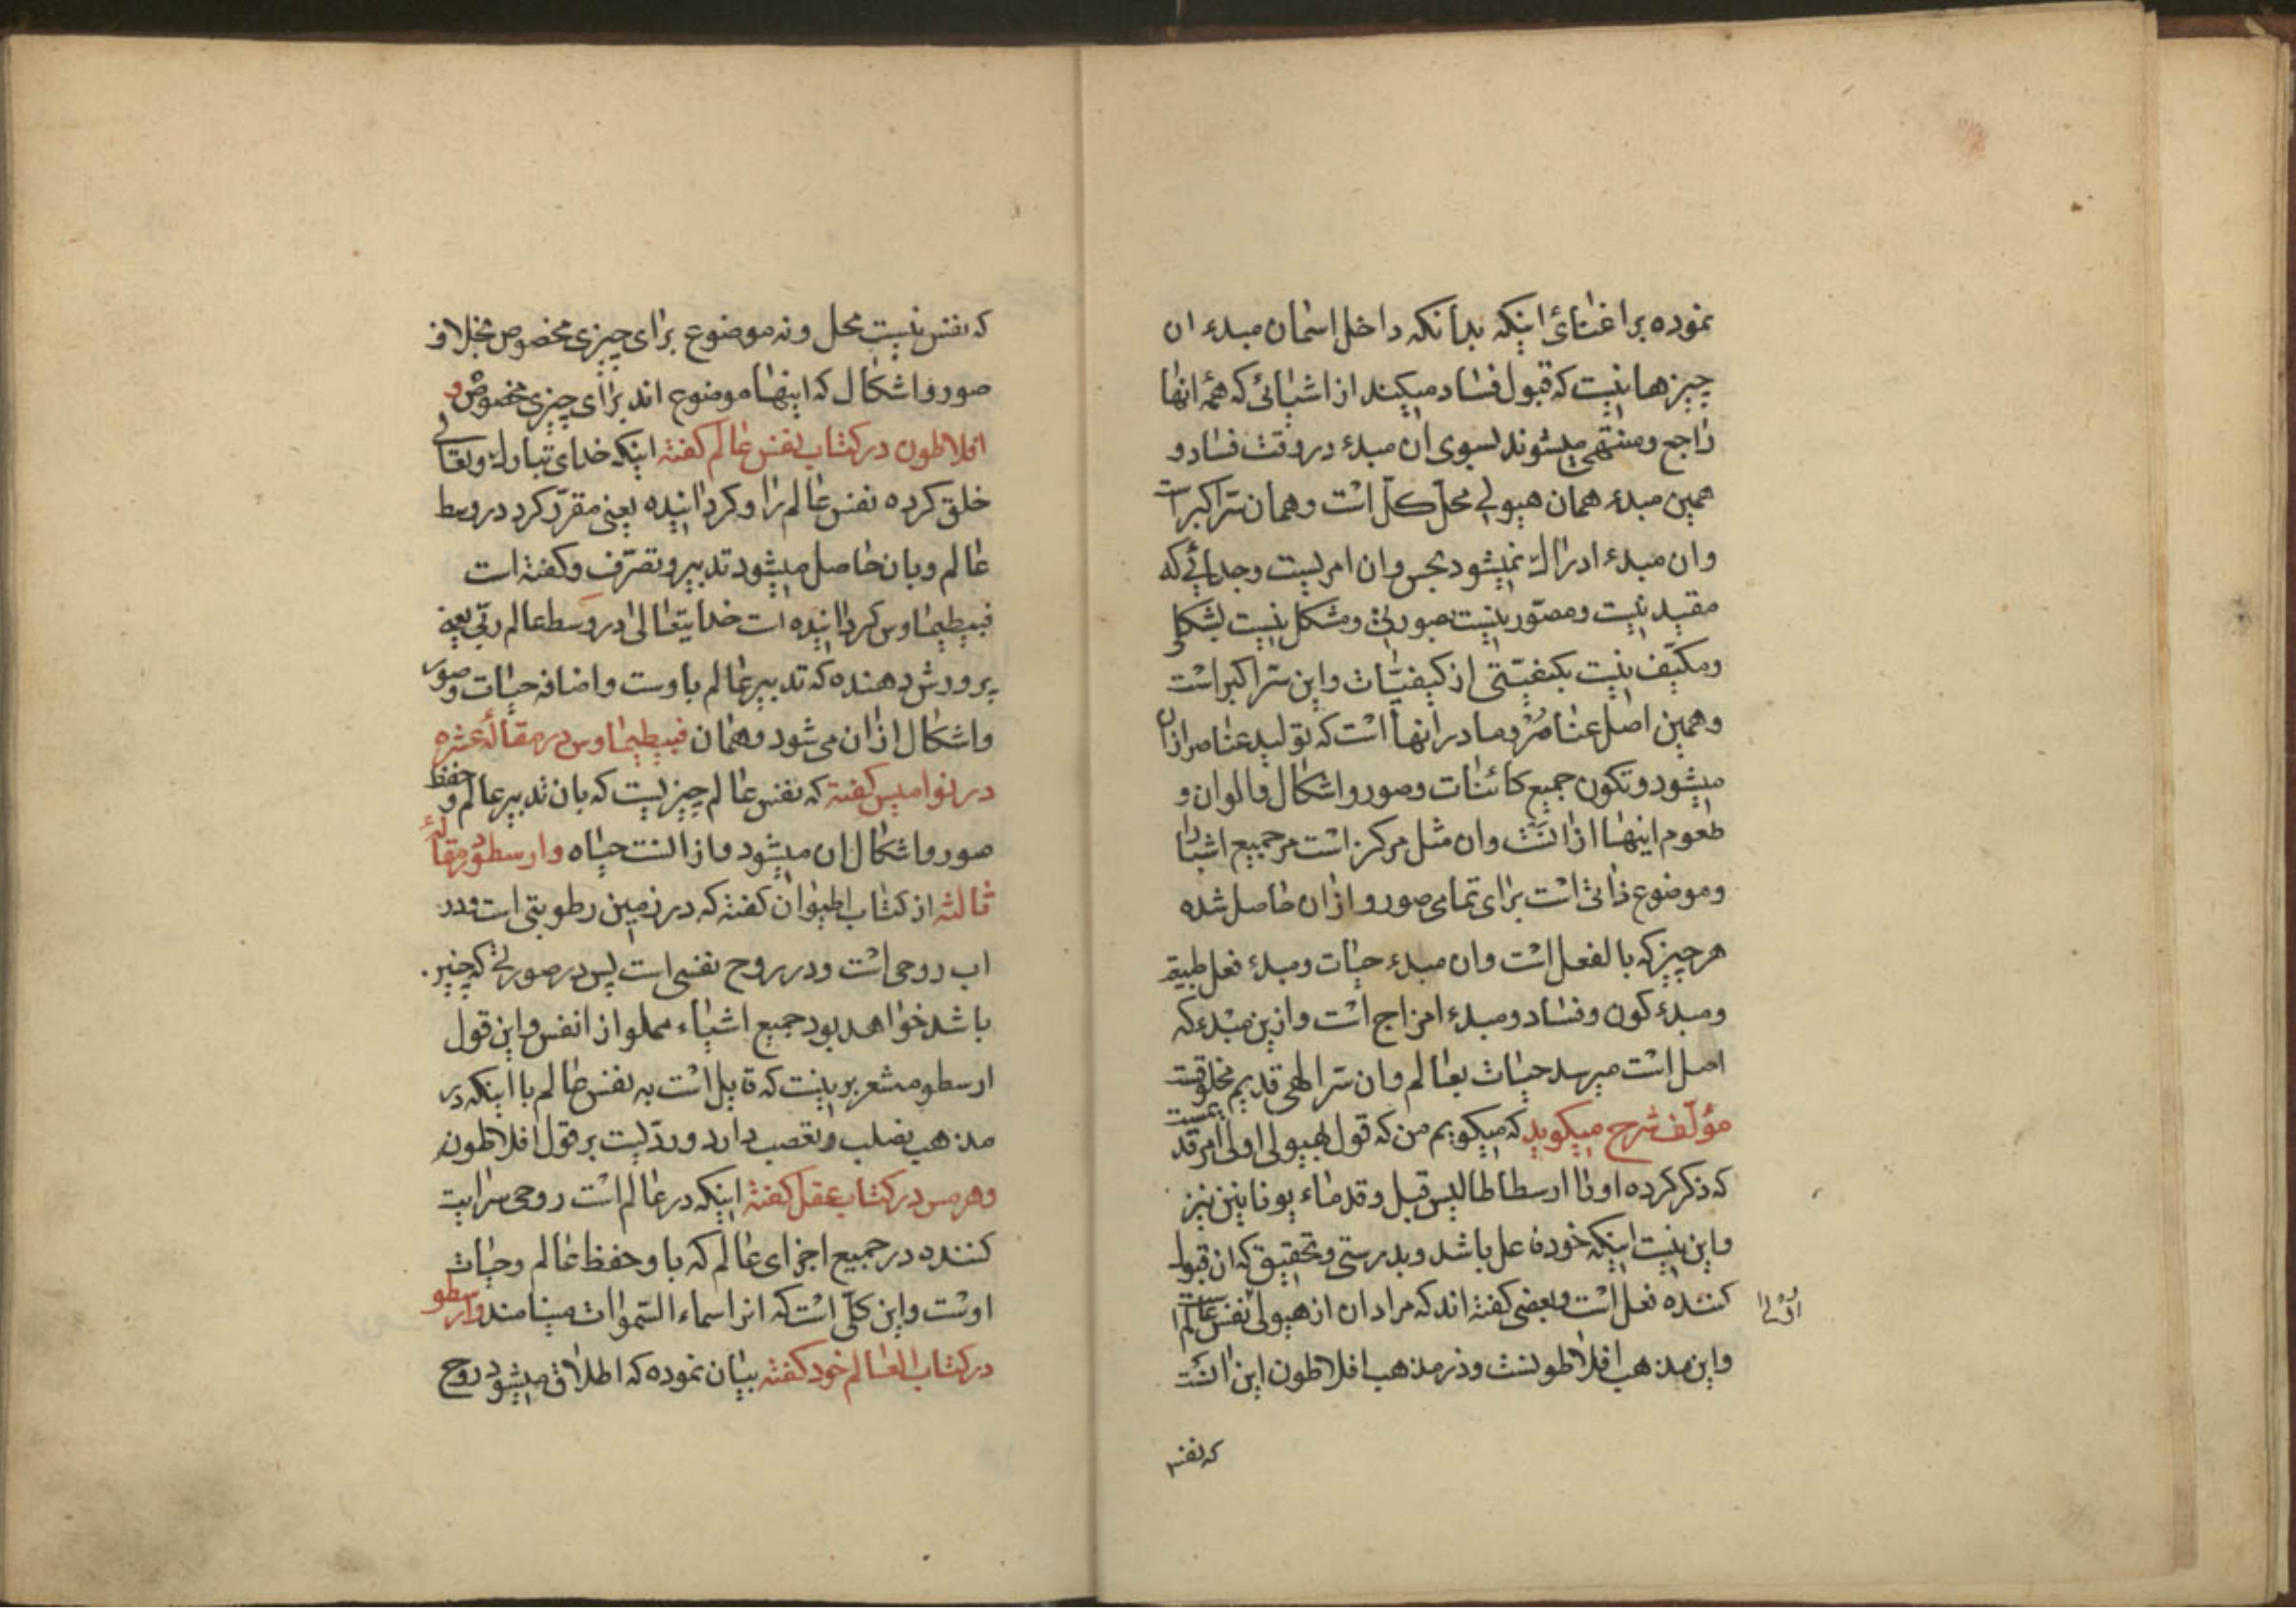 نموده براغنای اینکه بدانکه داخل اسمان مبدء ان
چیزها نیست که قبول فساد میکند از اشیائی که همه انها
راجع و منتهی میشوند بسوی ان مبدء در وقت فساد و
همین مبدء همان هیولی محل کل است و همان سرّ اکبر است
وان مبدء ادراك نمیشود بحس وان امریست وجدانی که
مقید نیست و مصوّر نیست بصورتی و مشکل نیست بشکلی
و مکیّف نیست بکیفیّتی از کیفیّات واین سرّ اکبر است
و همین اصل عناصر و مادر انها است که تولید عناصر ازان
میشود و تکون جمیع کائنات و صور و اشکال و الوان و
طعوم اینها از انست وان مثل مرکز است مر جمیع اشیا را
و موضوع ذاتی است برای تمامی صور و ازان حاصل شده
هر چیز که بالفعل است وان مبدء حیات و مبدء فعل طبیعه
و مبدء کون و فساد و مبدء امزاج است وازین مبدء که
اصل است میرسد حیات بعالم وان سرّ الهی قدیم مخلوقست
مؤلف شرح میکوید که میکویم من که قول بهیولی اولی امر قدیمست
که ذکر کرده اورا ارسطاطالیس قبل و قدماء یونانین نیز
واین نیست اینکه خود فاعل باشد و بدرستی و تحقیق که ان قبول
کننده فعل است و بعضی کفته اند که مراد ان از هیولی نفس عالم است
واین مذهب افلاطونست و در مذهب افلاطون این انست
که نفس
که نفس نیست محل و نه موضوع برای چیزی مخصوص بخلاف
صور و اشکال که اینها موضوع اند برای چیزی مخصوص و
افلاطون در کتاب نفس عالم کفته اینکه خدای تبارك و تعالی
خلق کرده نفس عالم را و کردانیده یعنی مقرّر کرد در وسط
عالم و بان حاصل میشود تدبیر و تصرّف و کفته است
فیطیماوس کردانیده است خدایتعالی در وسط عالم ربّی یعنی
پرورش دهنده که تدبیر عالم باوست و اضافه حیات و صور
و اشکال ازان می شود و همان فیطیماوس در مقاله عشره
در نوامیس کفته که نفس عالم چیزیست که بان تدبیر عالم و حفظ
صور و اشکال ان میشود و از انست حیاه و ارسطو در مقاله
ثالثه از کتاب حیوان کفته که در زمین رطوبتی است و در
اب روحی است و در روح نفسی است پس در صورتی که چنین
باشد خواهد بود جمیع اشیاء مملو از انفس و این قول
ارسطو مشعر بر اینست که قایل است به نفس عالم با اینکه در
مذهب تصلب و تعصب دارد و ردّیست بر قول افلاطون
و هرمس در کتاب عقل کفته اینکه در عالم است روحی سرایت
کننده در جمیع اجزای عالم که با و حفظ عالم و حیات
اوست واین کلّی است که انرا سماء السّموات مینامند و ارسطو
در کتاب العالم خود کفته بیان نموده که اطلاق میشود روح